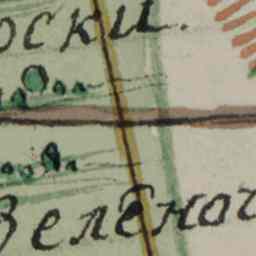 оски.
Зелѐног